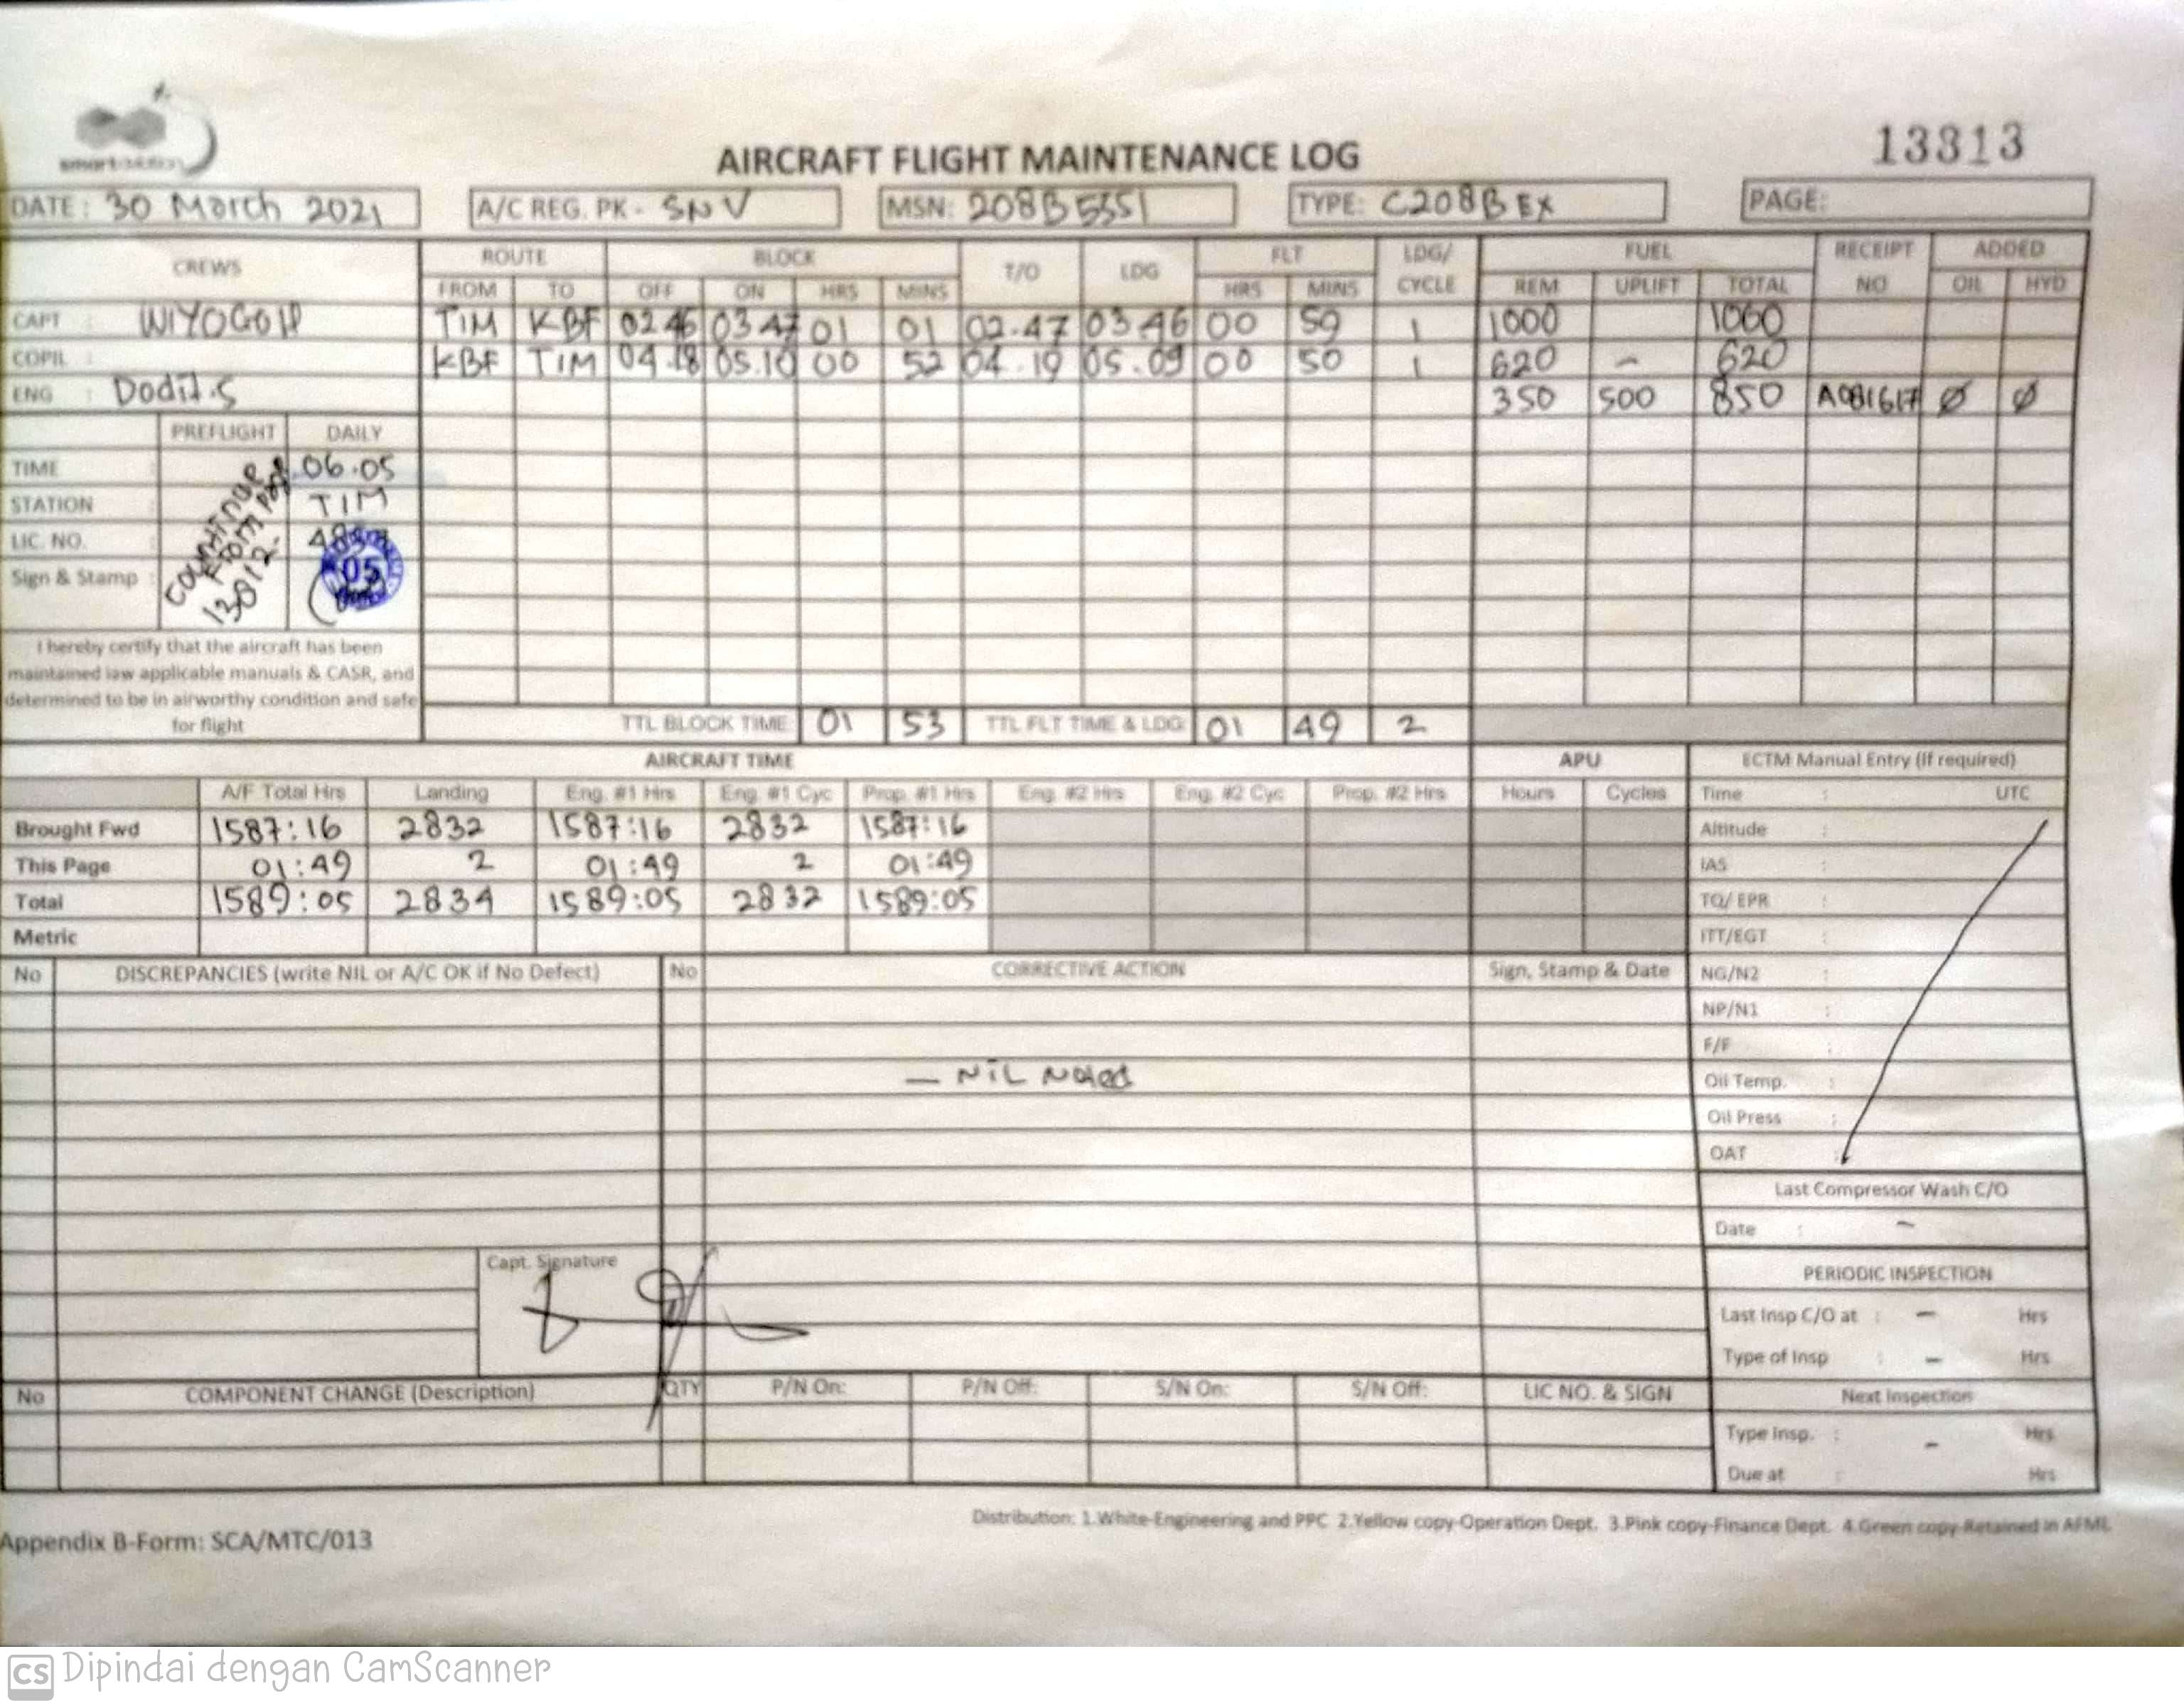 smart aviation
13313
AIRCRAFT FLIGHT MAINTENANCE LOG
DATE: 30 March 2021 A/C REG. PK - SNV MSN: 208B5551 TYPE: C208B EX PAGE:
CREWS ROUTE BLOCK T/O LDG FLT LDG/ CYCLE FUEL RECEIPT NO ADDED
FROM TO OFF ON HRS MINS HRS MINS REM UPLIFT TOTAL OIL HYD
CAPT : WIYOGO TIM KBF 02 46 03 47 01 01 02.47 03 46 00 59 1 1000 1000
COPIL : KBF TIM 04.18 05.10 00 52 04.19 05.09 00 50 1 620 - 620
ENG : Dodit.S 350 500 850 A081617 Ø Ø
PREFLIGHT DAILY
TIME : 06.05
STATION TIM
LIC. NO. :
Sign & Stamp : 05
FROM
13812.
I hereby certify that the aircraft has been
maintained iaw applicable manuals & CASR, and
determined to be in airworthy condition and safe
for flight
TTL BLOCK TIME 01 53 TTL FLT TIME & LDG 01 49 2
AIRCRAFT TIME APU ECTM Manual Entry (If required)
A/F Total Hrs Landing Eng. #1 Hrs Eng. #1 Cyc Prop. #1 Hrs Eng. #2 Hrs Eng. #2 Cyc Prop. #2 Hrs Hours Cycles Time : UTC
Brought Fwd 1587:16 2832 1587:16 2832 1587:16 Altitude :
This Page 01:49 2 01:49 2 01:49 IAS :
Total 1589:05 2834 1589:05 2832 1589:05 TQ/ EPR :
Metric ITT/EGT :
No DISCREPANCIES (write NIL or A/C OK if No Defect) No CORRECTIVE ACTION Sign, Stamp & Date NG/N2 :
NP/N1 :
F/F :
— NIL Noted
Oil Temp. :
Oil Press :
OAT :
Last Compressor Wash C/O
Date : -
Capt. Signature
PERIODIC INSPECTION
Last Insp C/O at : - Hrs
Type of Insp : - Hrs
No COMPONENT CHANGE (Description) QTY P/N On: P/N Off: S/N On: S/N Off: LIC NO. & SIGN Next Inspection
Type Insp. : - Hrs
Due at : Hrs
Distribution: 1.White-Engineering and PPC 2.Yellow copy-Operation Dept. 3.Pink copy-Finance Dept. 4.Green copy-Retained in AFML
Appendix B-Form: SCA/MTC/013
CS Dipindai dengan CamScanner